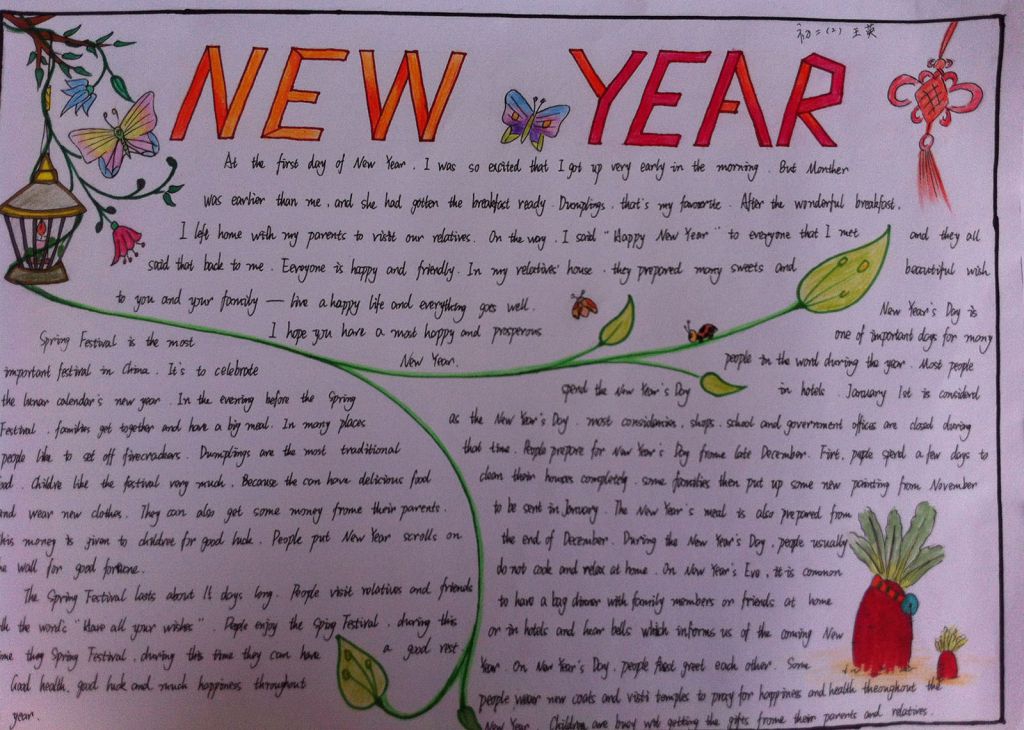 初二(2) 王英
NEW YEAR
At the first day of New Year, I was so excited that I got up very early in the morning. But Monther
was earhier than me, and she had gotten the breakfast ready. Dumplings, that's my favourite. After the wonderful breakfast,
I left home with my parents to visit our relatives. On the way, I said "Happy New Year" to everyone that I met and they all
said that back to me. Eeveryone is happy and friendly. In my relatives' house, they prepared many sweets and beautiful wish
to you and your family — live a happy life and everything goes well.
I hope you have a most happy and prosperous
New Year.
Spring Festival is the most
important festival in China. It's to celebrate
the lunar calendar's new year. In the evening before the Spring
Festival, families get together and have a big meal. In many places
people like to set off firecrackers. Dumplings are the most traditional
od. Childre like the festival very much, Because the can have delicious food
nd wear new clothes. They can also get some money frome their parents.
his money is given to children for good luck. People put New Year scrolls on
e wall for good fortune.
The Spring Festival lasts about 15 days long. People visit relatives and friends
th the words "Have all your wishes". People enjoy the Sping Festival, during this
me they Spring Festival, during this time they can have a good rest
Good health, good luck and much happiness throughout
year.
New Year's Day is
one of important days for many
people in the word durring the year. Most people
spend the New Year's Day in hotels. January 1st is considerd
as the New Year's Day, most considanies, shops, school and government offices are closed during
that time. People prepare for New Year's Day frome late December. Firt, pople spend a few days to
clean their houses completely, some families then put up some new painting from November
to be sent in January. The New Year's meal is also prepared from
the end of December. During the New Year's Day, people usually
do not cook and relax at home. On New Year's Eve, it is common
to have a bag dinner with family members or friends at home
or in hotels and hear bells which informs us of the coming New
Year. On New Year's Day, people greet each other. Some
people wear new coats and visti temples to pray for happiness and health theoughout the
New Year. Children are busy with getting the gifts frome their parents and relatives.